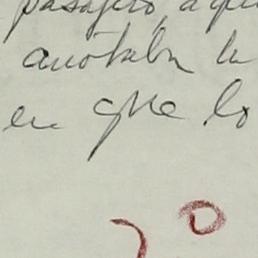 pasajero, aqu
anotaba la
en que lo